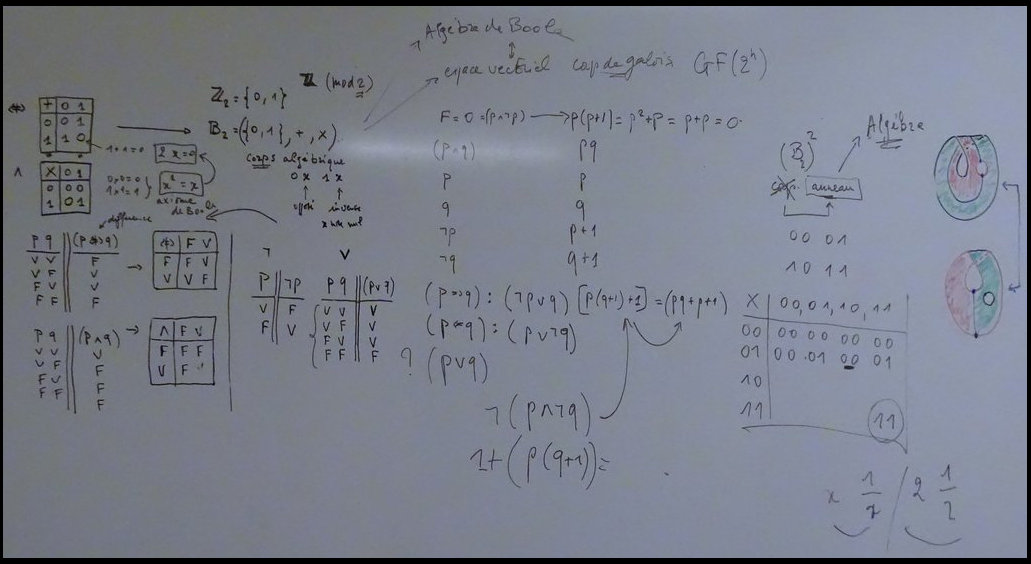 Algèbre de Boole
espace vectoriel corps de galois GF(2ⁿ)
ℤ (mod 2)
ℤ₂ = {0,1}
B₂ = ({0,1}, +, ×)
corps algébrique
0 x 1 x
inverse
x non nul
+ 0 1
0 0 1
1 1 0
1+1=0
2x=0
∧
X 0 1
0 0 0
1 0 1
0×0=0
1×1=1
x²=x
axiome
de Boole
différence
F=0=(p∧¬p) → p(p+1)=p²+p=p+p=0
(p∧q) pq
p p
q q
¬p p+1
¬q q+1
(p⇒q) : (¬p∨q) [p(q+1)+1] = (pq+p+1)
(p⇐q) : (p∨¬q)
? (p∨q)
¬(p∧¬q)
1+(p(q+1))=
p q (p⇎q)
V V F
V F V
F V V
F F F
(⇎) F V
F F V
V V F
p q (p∧q)
V V V
V F F
F V F
F F F
∧ F V
F F F
V F
¬
P ¬p
V F
F V
∨
p q (p∨q)
V V V
V F V
F V V
F F F
Algèbre
(B₂)²
corps anneau
00 01
10 11
X 00, 01, 10, 11
00 00 00 00 00
01 00 01 00 01
10
11 11
x 1/x / 2 1/2